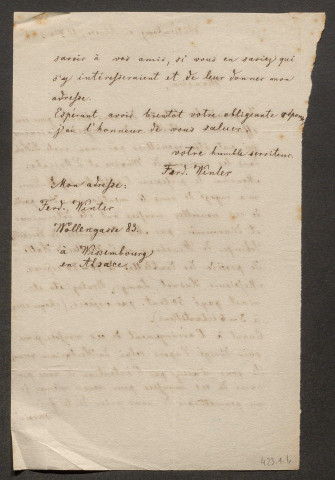 savoir à vos amis, si vous en saviez qui
s'y intéresseraient et de leur donner mon
adresse.
Espérant, avoir bientôt votre obligeante répons
j'ai l'honneur de vous saluer.
votre humble serviteur.
Ferd. Winter
Mon adresse:
Ferd. Winter
Wollengasse 83.
à Wissembourg
en Alsace.